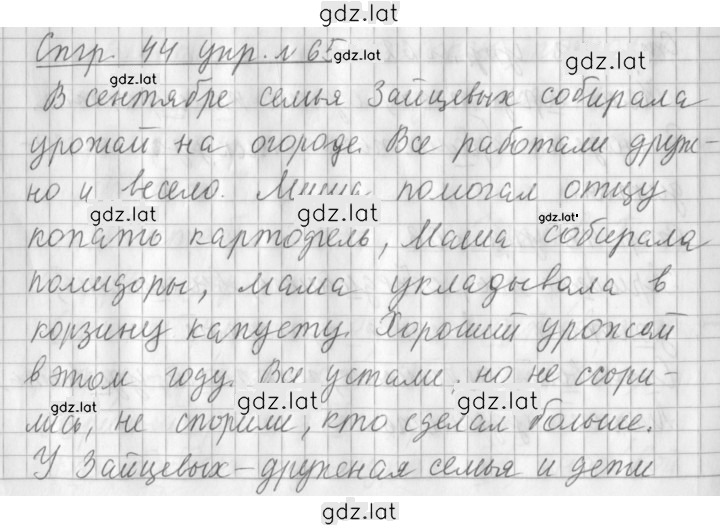 gdz.lat
Стр. 44 упр. № 65
gdz.lat
gdz.lat
gdz.lat
В сентябре семья Зайцевых собирала
урожай на огороде. Все работали друж-
но и весело. Миша помогал отцу
gdz.lat
gdz.lat
gdz.lat
копать картофель, Маша собирала
помидоры, мама укладывала в
корзину капусту. Хороший урожай
в этом году. Все устали, но не ссори-
gdz.lat
gdz.lat
gdz.lat
лись, не спорили, кто сделал больше.
У Зайцевых - дружная семья и дети
gdz.lat